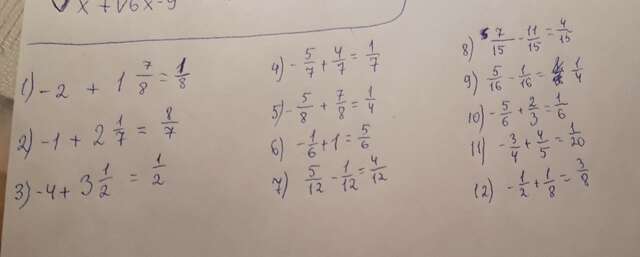 x + √6x-9
1) -2 + 1 7/8 = 1/8
2) -1 + 2 1/7 = 8/7
3) -4 + 3 1/2 = 1/2
4) - 5/7 + 4/7 = 1/7
5) - 5/8 + 7/8 = 1/4
6) - 1/6 + 1 = 5/6
7) 5/12 - 1/12 = 4/12
8) 7/15 - 11/15 = 4/15
9) 5/16 - 1/16 = 1/4
10) - 5/6 + 2/3 = 1/6
11) - 3/4 + 4/5 = 1/20
12) - 1/2 + 1/8 = 3/8